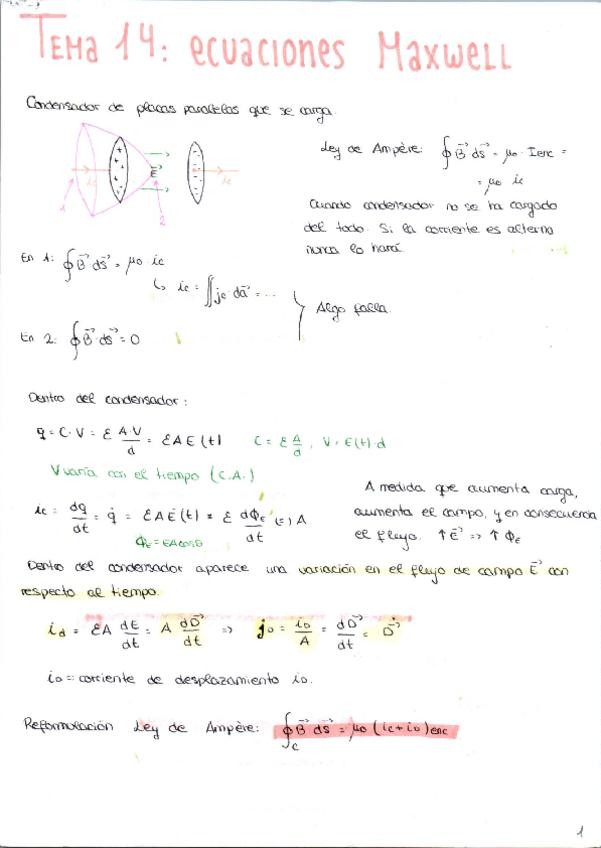 TEMA 14: ecuaciones Maxwell
Condensador de placas paralelas que se carga.
Ley de Ampère: ∮ B⃗ ds⃗ = μ₀ · Ienc =
= μ₀ ic
ic
E⃗
ic
1
2
Cuando condensador no se ha cargado
del todo. Si la corriente es alterna
nunca lo hará.
En 1: ∮ B⃗ ds⃗ = μ₀ · ic
↳ ic = ∬ jc da⃗ = ...
Algo falla.
En 2: ∮ B⃗ · ds⃗ = 0
Dentro del condensador:
q = C · V = ε A·V/d = εAE(t) C = ε A/d , V = E(t) · d
V varía con el tiempo (C.A.)
ic = dq/dt = q̇ = εAĖ(t) = ε dΦE/dt (=) A
ΦE = EAcosθ
A medida que aumenta carga,
aumenta el campo, y en consecuencia
el flujo. ↑E⃗ => ↑ΦE
Dentro del condensador aparece una variación en el flujo de campo E⃗ con
respecto al tiempo.
id = εA dE/dt = A dD⃗/dt => jD = iD/A = dD⃗/dt = D⃗̇
iD = corriente de desplazamiento iD.
Reformulación Ley de Ampère: ∮c B⃗ ds⃗ = μ₀ (ic + iD)enc
1